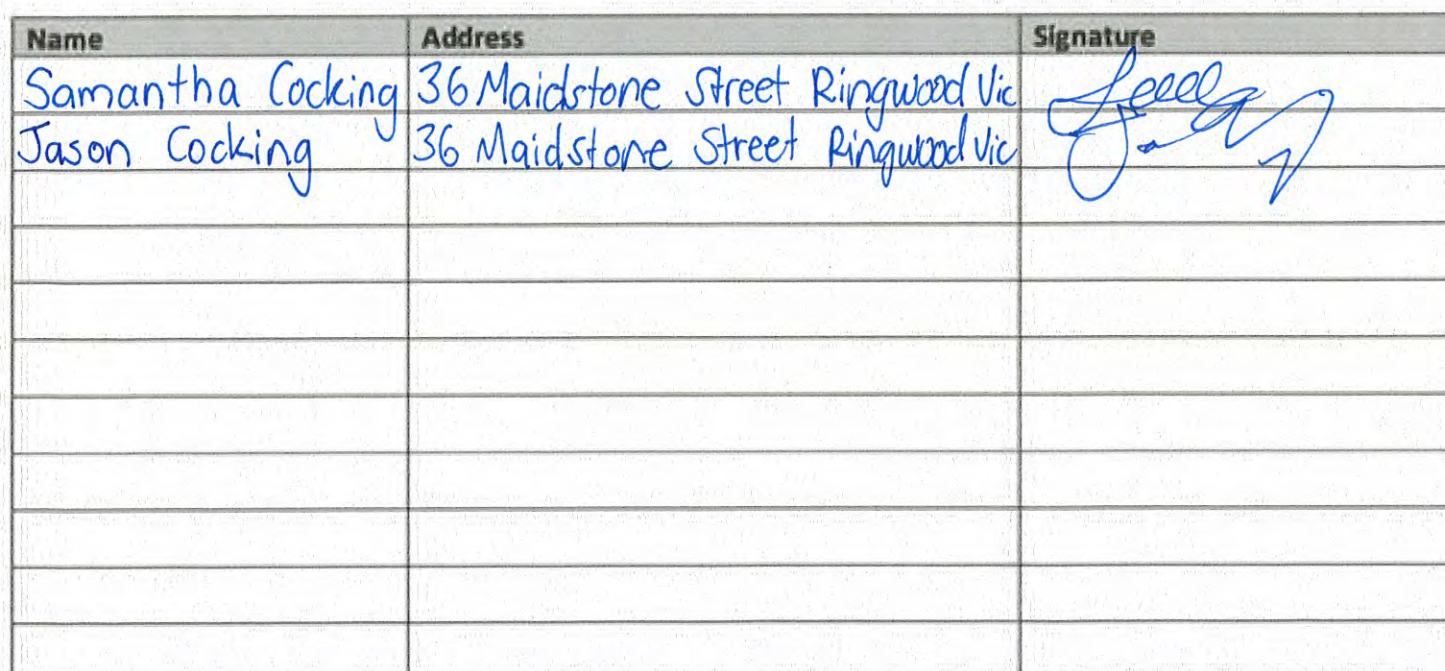 Name Address Signature
Samantha Cocking 36 Maidstone Street Ringwood Vic
Jason Cocking 36 Maidstone Street Ringwood Vic